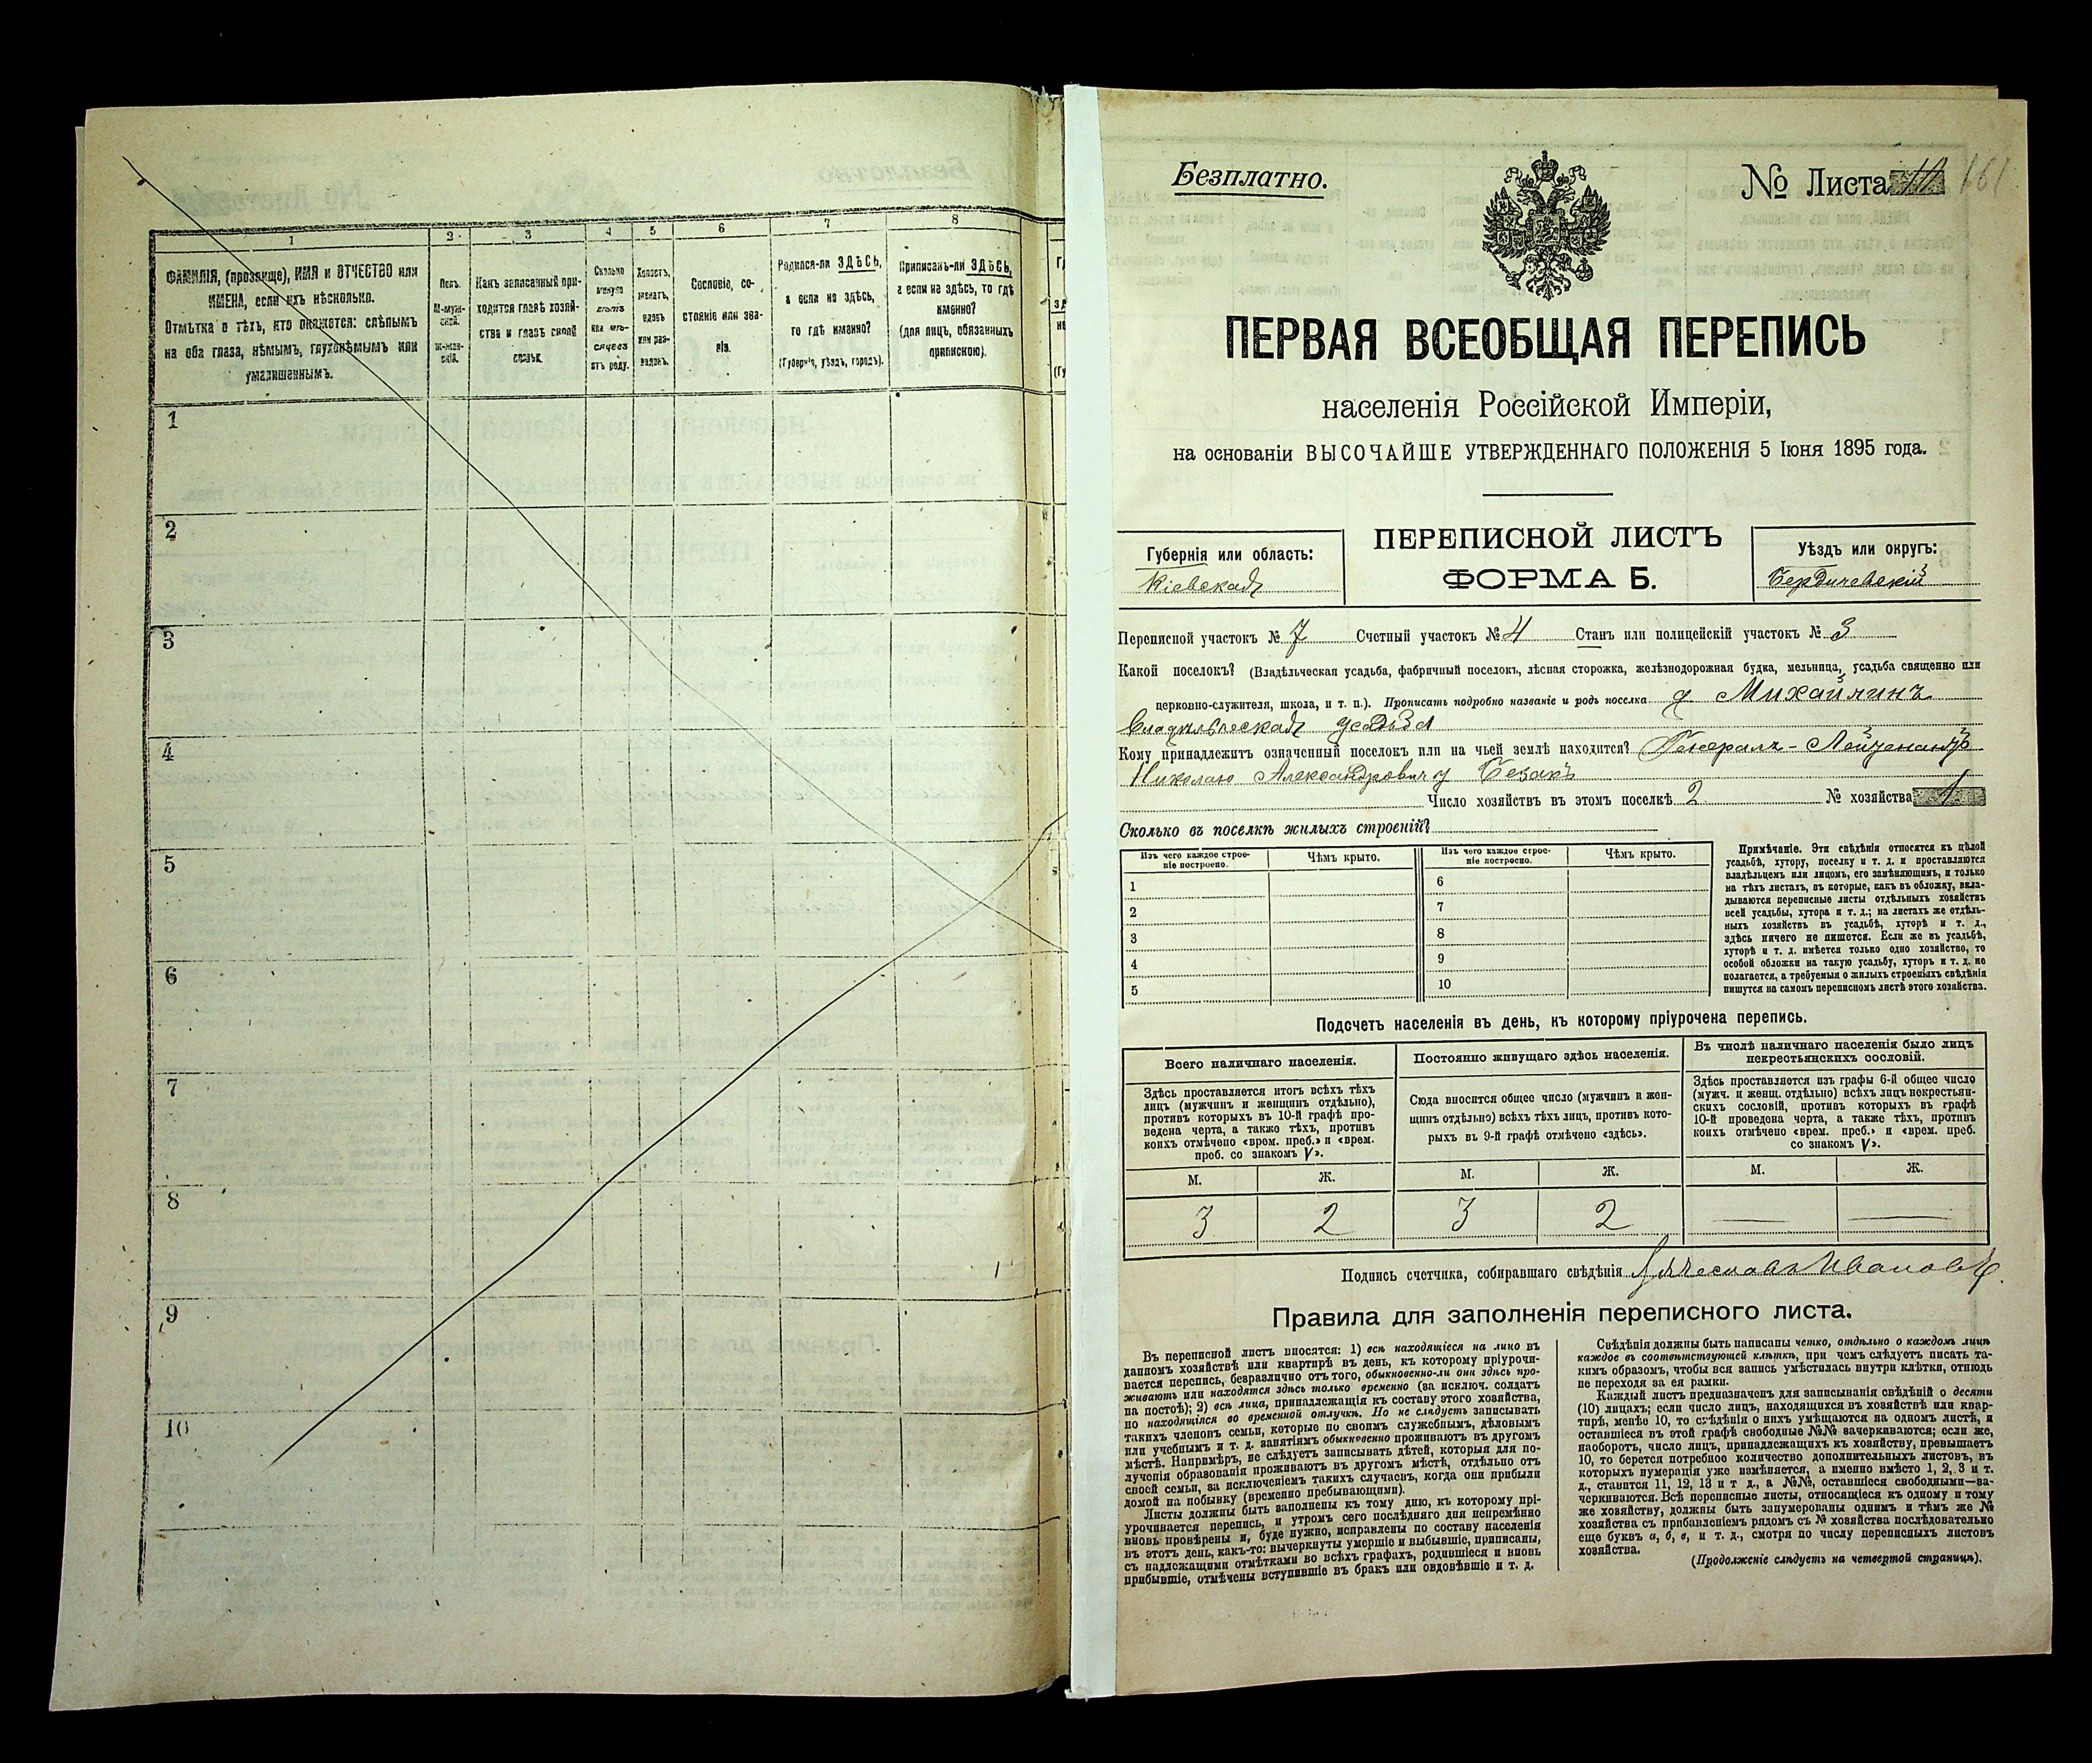 1
2
3
4
5
6
7
8
ФАМИЛІЯ, (прозвище), ИМЯ и ОТЧЕСТВО или
ИМЕНА, если ихъ нѣсколько.
Отмѣтка о тѣхъ, кто окажется: слѣпымъ
на оба глаза, нѣмымъ, глухонѣмымъ или
умалишеннымъ.
Полъ.
М-муж-
ской.
Ж-жен-
скій.
Какъ записанный при-
ходится главѣ хозяй-
ства и главѣ своей
семьи.
Сколько
минуло
лѣтъ
или мѣ-
сяцевъ
отъ роду.
Холостъ,
женатъ,
вдовъ
или раз-
веденъ.
Сословіе, со-
стояніе или зва-
ніе.
Родился-ли ЗДѢСЬ,
а если не здѣсь,
то гдѣ именно?
(Губернія, уѣздъ, городъ).
Приписанъ-ли ЗДѢСЬ,
а если не здѣсь, то гдѣ
именно?
(для лицъ, обязанныхъ
припискою).
1
2
3
4
5
6
7
8
9
10
Безплатно.
№ Листа 161
ПЕРВАЯ ВСЕОБЩАЯ ПЕРЕПИСЬ
населенія Россійской Имперіи,
на основаніи ВЫСОЧАЙШЕ УТВЕРЖДЕННАГО ПОЛОЖЕНІЯ 5 Іюня 1895 года.
Губернія или область:
Кіевская
ПЕРЕПИСНОЙ ЛИСТЪ
ФОРМА Б.
Уѣздъ или округъ:
Бердичевскій
Переписной участокъ № 7 Счетный участокъ № 4 Станъ или полицейскій участокъ № 3
Какой поселокъ? (Владѣльческая усадьба, фабричный поселокъ, лѣсная сторожка, желѣзнодорожная будка, мельница, усадьба священно или
церковно-служителя, школа, и т. п.). Прописать подробно названіе и родъ поселка д Михайлинъ
Владѣльческая усадьба
Кому принадлежитъ означенный поселокъ или на чьей землѣ находится? Генералъ-Лейтенантъ
Николаю Александровичу Безакъ
Число хозяйствъ въ этомъ поселкѣ 2 № хозяйства 1
Сколько въ поселкѣ жилыхъ строеній?
Изъ чего каждое строе-
ніе построено.
Чѣмъ крыто.
Изъ чего каждое строе-
ніе построено.
Чѣмъ крыто.
1
2
3
4
5
6
7
8
9
10
Примѣчаніе. Эти свѣдѣнія относятся къ цѣлой
усадьбѣ, хутору, поселку и т. д. и проставляются
владѣльцемъ или лицомъ, его замѣняющимъ, и только
на тѣхъ листахъ, въ которые, какъ въ обложку, вкла-
дываются переписные листы отдѣльныхъ хозяйствъ
всей усадьбы, хутора и т. д.; на листахъ же отдѣль-
ныхъ хозяйствъ въ усадьбѣ, хуторѣ и т. д.,
здѣсь ничего не пишется. Если же въ усадьбѣ,
хуторѣ и т. д. имѣется только одно хозяйство, то
особой обложки на такую усадьбу, хуторъ и т. д. не
полагается, а требуемыя о жилыхъ строеніяхъ свѣдѣнія
пишутся на самомъ переписномъ листѣ этого хозяйства.
Подсчетъ населенія въ день, къ которому пріурочена перепись.
Всего наличнаго населенія.
Здѣсь проставляется итогъ всѣхъ тѣхъ
лицъ (мужчинъ и женщинъ отдѣльно),
противъ которыхъ въ 10-й графѣ про-
ведена черта, а также тѣхъ, противъ
коихъ отмѣчено «врем. преб.» и «врем.
преб. со знакомъ V».
Постоянно живущаго здѣсь населенія.
Сюда вносится общее число (мужчинъ и жен-
щинъ отдѣльно) всѣхъ тѣхъ лицъ, противъ кото-
рыхъ въ 9-й графѣ отмѣчено «здѣсь».
Въ числѣ наличнаго населенія было лицъ
некрестьянскихъ сословій.
Здѣсь проставляется изъ графы 6-й общее число
(мужч. и женщ. отдѣльно) всѣхъ лицъ некрестьян-
скихъ сословій, противъ которыхъ въ графѣ
10-й проведена черта, а также тѣхъ, противъ
коихъ отмѣчено «врем. преб.» и «врем. преб.
со знакомъ V».
М. Ж. М. Ж. М. Ж.
3 2 3 2 — —
Подпись счетчика, собиравшаго свѣдѣнія Вячеславъ Ивановъ
Правила для заполненія переписного листа.
Въ переписной листъ вносятся: 1) всѣ находящіеся на лицо въ
данномъ хозяйствѣ или квартирѣ въ день, къ которому пріурочи-
вается перепись, безразлично отъ того, обыкновенно-ли они здѣсь про-
живаютъ или находятся здѣсь только временно (за исключ. солдатъ
на постоѣ); 2) всѣ лица, принадлежащія къ составу этого хозяйства,
но находящіяся во временной отлучкѣ. Но не слѣдуетъ записывать
такихъ членовъ семьи, которые по своимъ служебнымъ, дѣловымъ
или учебнымъ и т. д. занятіямъ обыкновенно проживаютъ въ другомъ
мѣстѣ. Напримѣръ, не слѣдуетъ записывать дѣтей, которыя для по-
лученія образованія проживаютъ въ другомъ мѣстѣ, отдѣльно отъ
своей семьи, за исключеніемъ такихъ случаевъ, когда они прибыли
домой на побывку (временно пребывающими).
Листы должны быть заполнены къ тому дню, къ которому прі-
урочивается перепись, и утромъ сего послѣдняго дня непремѣнно
вновь провѣрены и, буде нужно, исправлены по составу населенія
въ этотъ день, какъ-то: вычеркнуты умершіе и выбывшіе, приписаны,
съ надлежащими отмѣтками во всѣхъ графахъ, родившіеся и вновь
прибывшіе, отмѣчены вступившіе въ бракъ или овдовѣвшіе и т. д.
Свѣдѣнія должны быть написаны четко, отдѣльно о каждомъ лицѣ
каждое въ соотвѣтствующей клѣткѣ, при чемъ слѣдуетъ писать та-
кимъ образомъ, чтобы вся запись умѣстилась внутри клѣтки, отнюдь
не переходя за ея рамки.
Каждый листъ предназначенъ для записыванія свѣдѣній о десяти
(10) лицахъ; если число лицъ, находящихся въ хозяйствѣ или квар-
тирѣ, менѣе 10, то свѣдѣнія о нихъ умѣщаются на одномъ листѣ, и
оставшіеся въ этой графѣ свободные №№ зачеркиваются; если же,
наоборотъ, число лицъ, принадлежащихъ къ хозяйству, превышаетъ
10, то берется потребное количество дополнительныхъ листовъ, въ
которыхъ нумерація уже измѣняется, а именно вмѣсто 1, 2, 3 и т.
д., ставится 11, 12, 13 и т д., а №№, оставшіеся свободными—за-
черкиваются. Всѣ переписные листы, относящіеся къ одному и тому
же хозяйству, должны быть занумерованы однимъ и тѣмъ же №
хозяйства съ прибавленіемъ рядомъ съ № хозяйства послѣдовательно
еще буквъ а, б, в, и т. д., смотря по числу переписныхъ листовъ
хозяйства.
(Продолженіе слѣдуетъ на четвертой страницѣ).